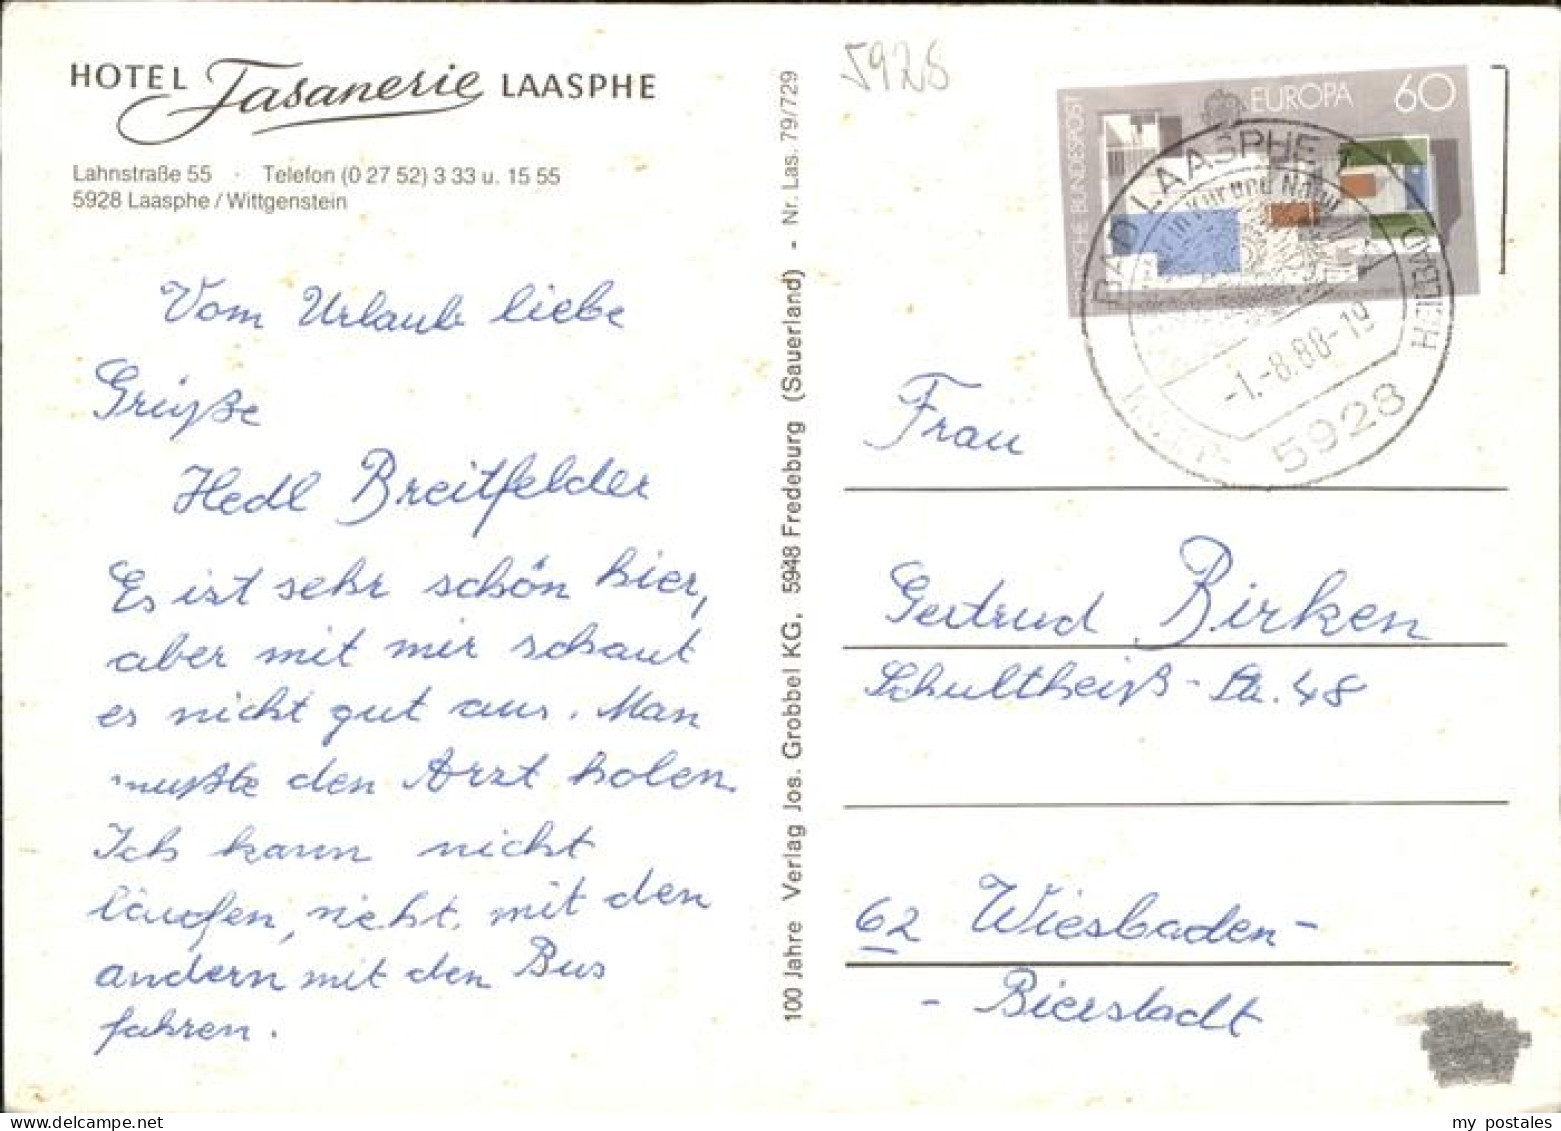 HOTEL Fasanerie LAASPHE
Lahnstraße 55 · Telefon (0 27 52) 3 33 u. 15 55
5928 Laasphe / Wittgenstein
Vom Urlaub liebe
Grüße
Hedl Breitfelder
Es ist sehr schön hier,
aber mit mir schaut
es nicht gut aus. Man
mußte den Arzt holen.
Ich kann nicht
laufen, nicht mit den
andern mit den Bus
fahren.
100 Jahre Verlag Jos. Grobbel KG, 5948 Fredeburg (Sauerland) - Nr. Las. 79/729
5928
DEUTSCHE BUNDESPOST
EUROPA 60
BAD LAASPHE 1
in Kur und Natur
HEILBAD
-1.-8.88-19
5928
Frau
Gertrud Birken
Schultheiß-Str. 48
62 Wiesbaden-
- Bierstadt
my postales